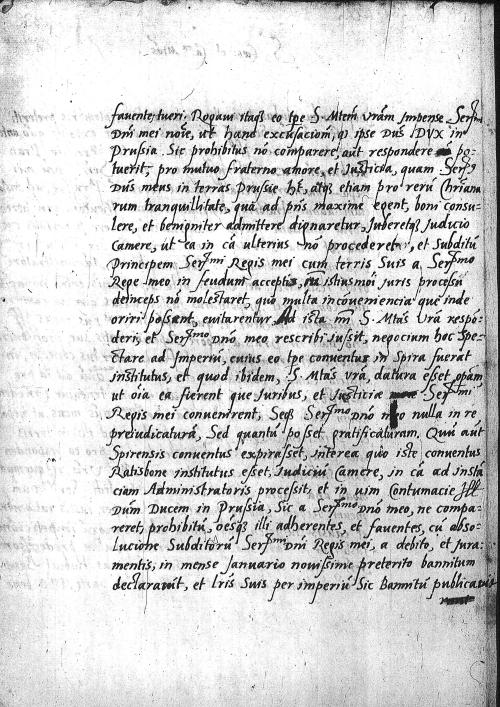 fauente, tueri. Rogaui itaq3 eo tpe S. Mtem Vram Impense Sermi
Dni mei noie, ut hanc excusacionem, qd ipse Dus DVX in
Prussia. Sic prohibitus no comparere, aut respondere po-
tuerit, pro mutuo fraterno amore, et Justicia, quam Sermus
Dns meus in terras Prussie ht, atq3 etiam pro reru Chriana
rum tranquillitate, qua ad pns maxime egent, boni consu-
lere, et benigniter admittere dignaretur, Iuberetq3 Iudicio
Camere, ut ea in ca ulterius no procederet, et Subditu
Principem Sermi Regis mei cum terris Suis a Sermo
Rege meo in feudum acceptis, istiusmoi iuris processu
deinceps no molestaret, quo multa inconueniencia que inde
oriri possent, euitarentur. Ad ista mi S. Mtas Vra respo-
deri, et Sermo Dno meo rescribi Iussit, negocium hoc Spe-
ctare ad Imperiu, cuius eo tpe conuentus in Spira fuerat
institutus, et quod ibidem, S. Mtas Vra, datura esset opam
ut oia ea fierent que Iuribus, et Justicie Sermi
Regis mei conuenirent, Seq3 Sermo Dno meo nulla in re
preiudicatura, Sed quantu posset gratificaturam. Quu aut
Spirensis conuentus expirasset, interea quo iste conuentus
Ratisbone institutus esset, Iudiciu Camere, in ca ad insta
ciam Administratoris processit, et in uim Contumacie Ill
Dum Ducem in Prussia, Sic a Sermo Dno meo, ne compa-
reret, prohibitu, oesq3 illi adherentes, et fauentes, cu abso-
lucione Subditoru Sermi Dni Regis mei, a debito, et iura-
mentis, in mense Ianuario nouissime preterito bannitum
declarauit, et lris Suis per imperiu Sic Bannitu publicauit